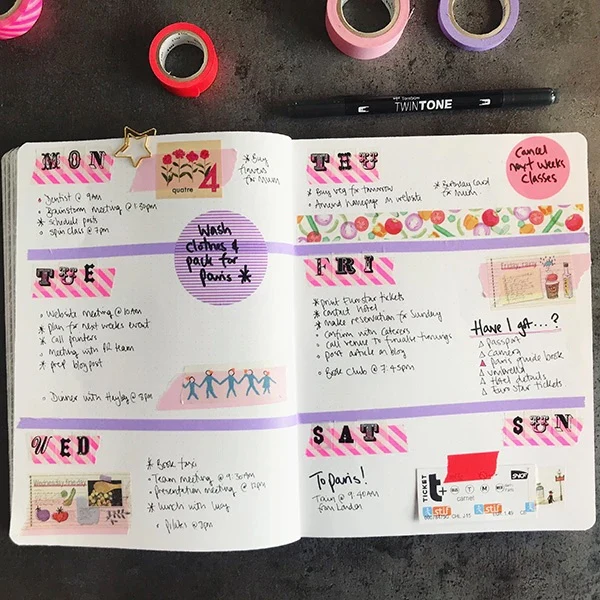 TWINTONE
MON
Dentist @ 9am
Brainstorm meeting @ 1:30pm
* Schedule posts
Spin class @ 7pm
quatre 4
* Buy
flowers
for Mum
Wash
clothes &
pack for
Paris *
TUE
Website meeting @ 10am
* plan for next weeks event
* Call printers
Meeting with PR team
* prep blogpost
Dinner with Hayley @ 8pm
WED
* Book taxi
Team meeting @ 9:30am
Presentation meeting @ 12pm
* lunch with Lucy
Pilates @ 7pm
THU
* Buy veg for tomorrow
Amend homepage on website
* Birthday card
for Mum
Cancel
next weeks
classes
FRI
* print Eurostar tickets
* contact hotel
* make reservation for Sunday
Confirm with caterers
Call venue to finalise timings
post article on blog
Book Club @ 7:45pm
Have I got...?
passport
Camera
Paris guide book
umbrella
Hotel details
Eurostar tickets
SAT
To Paris!
Train @ 9:40am
from London
SUN
TICKET
t+
SNCF
carnet
stif
stif